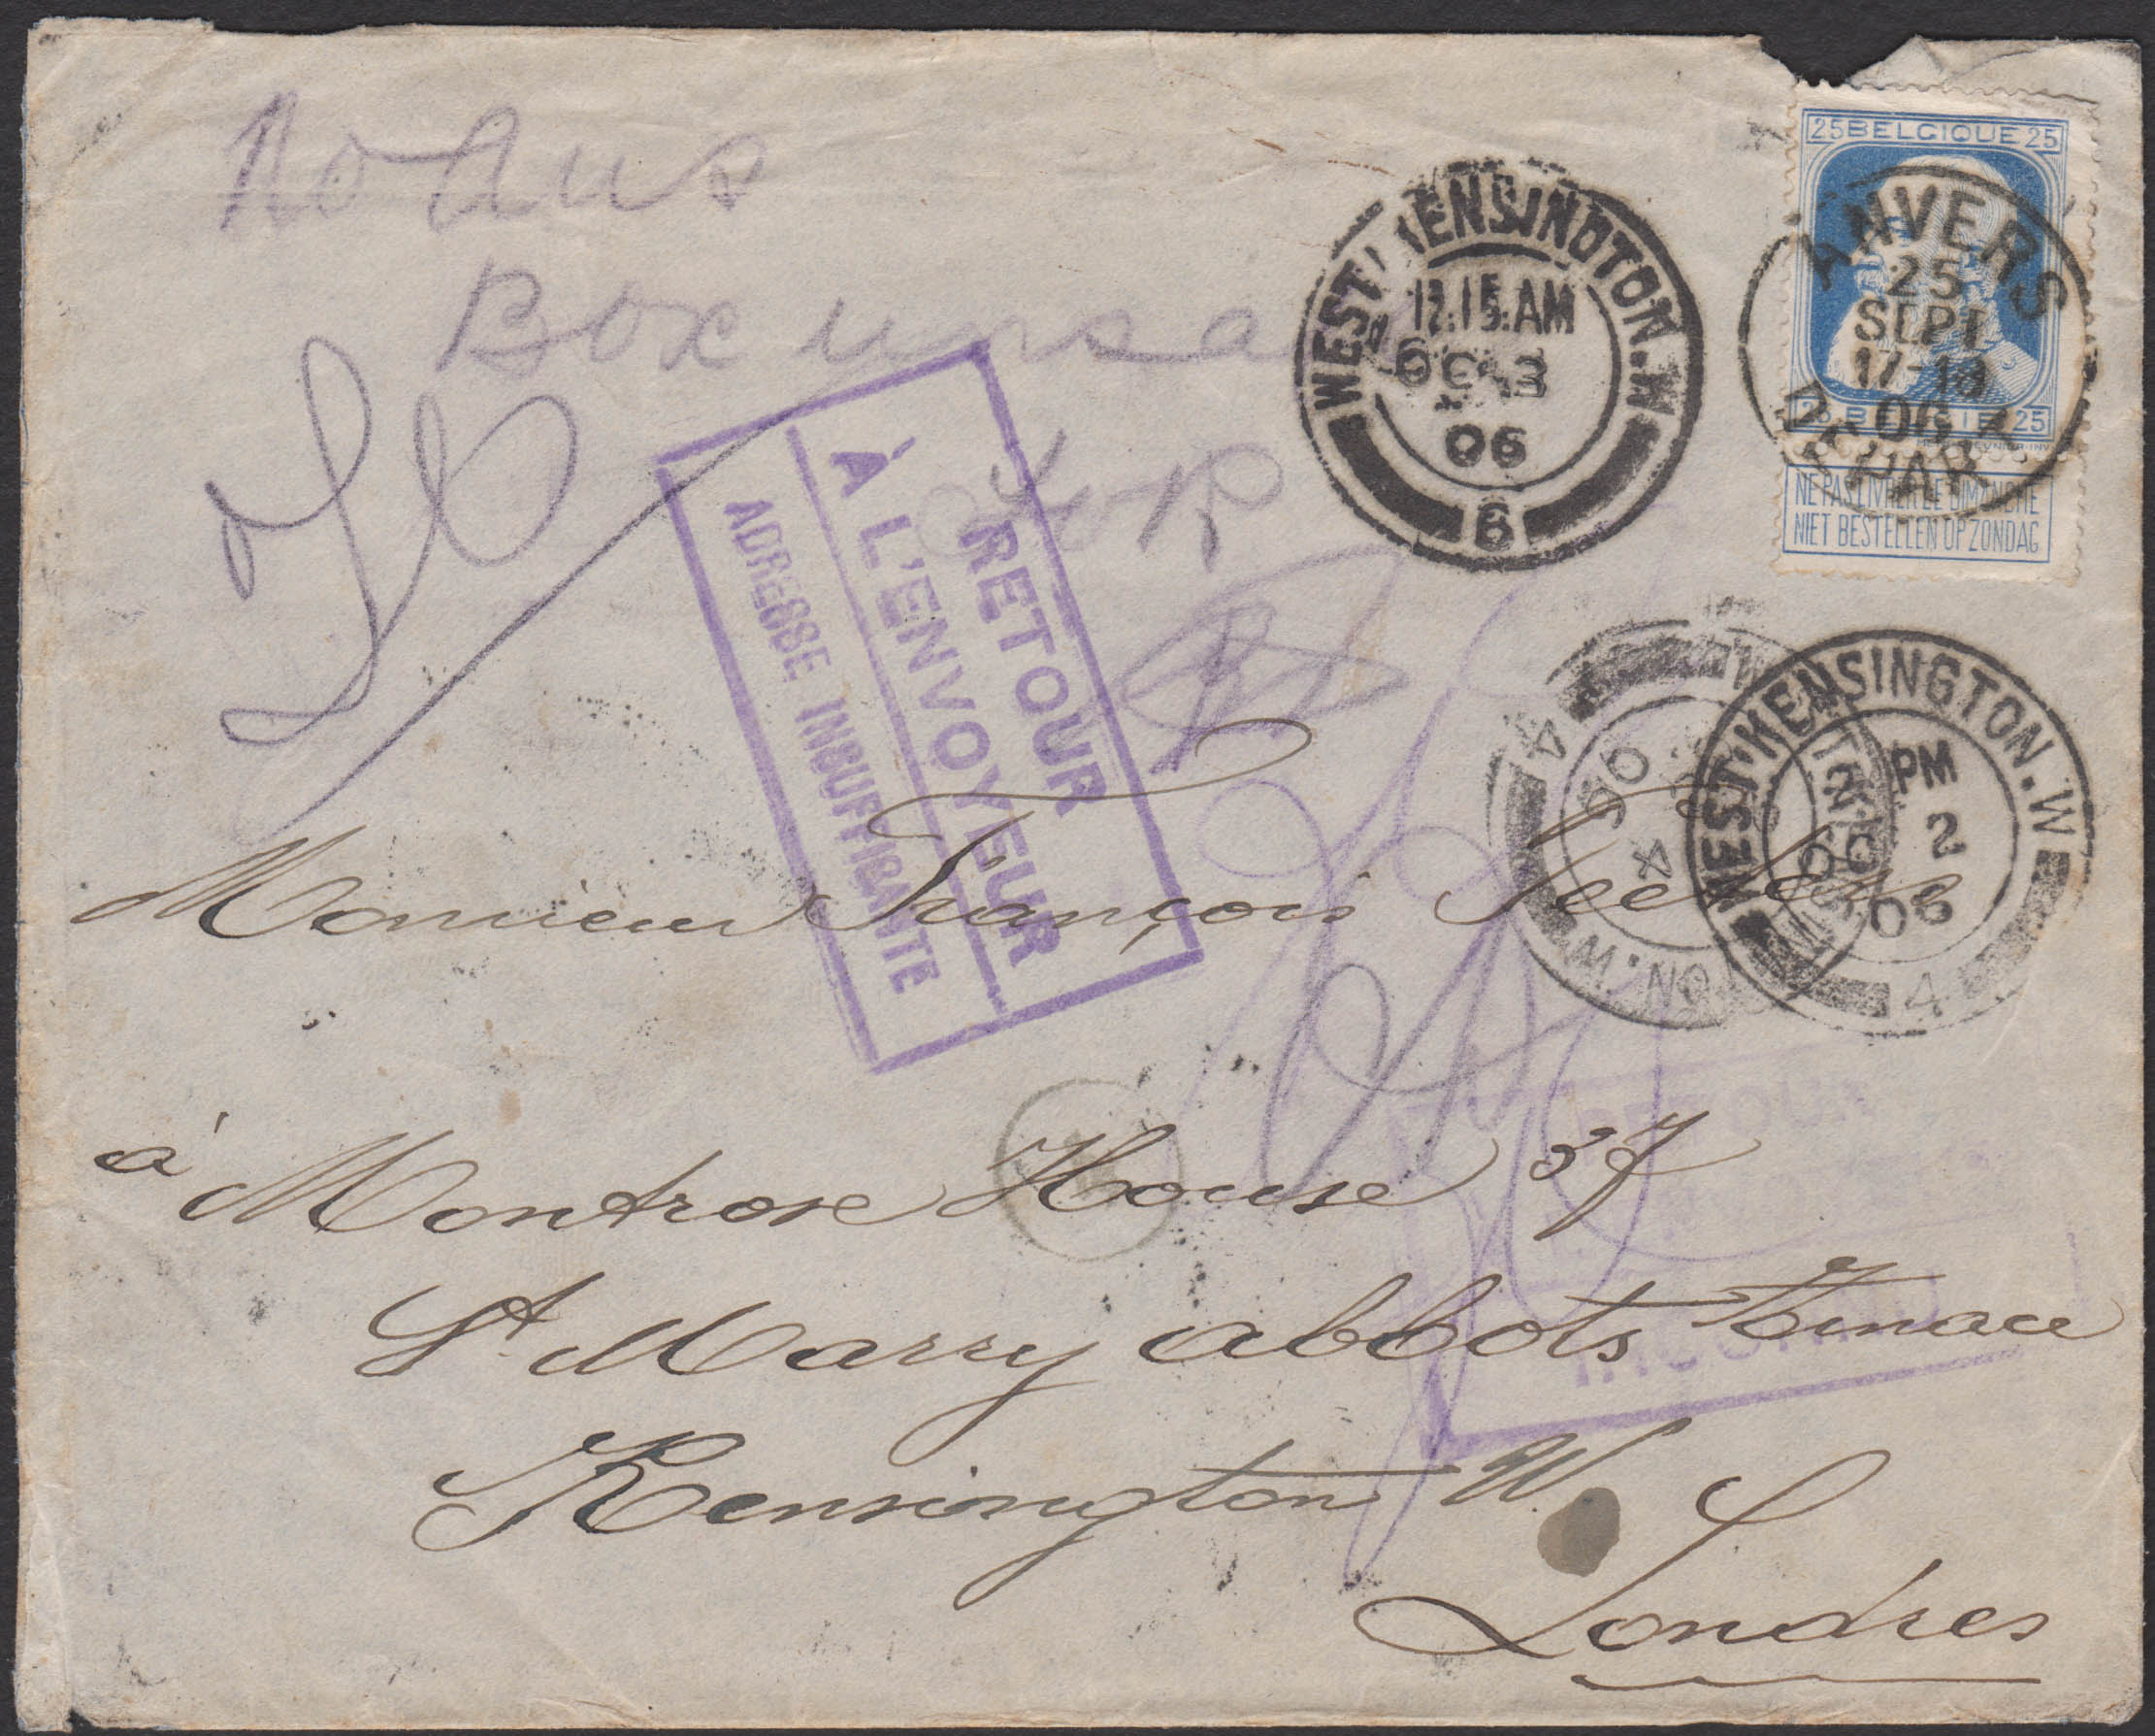 No Ans
Box unsa
for
RETOUR
À L'ENVOYEUR
ADRESSE INSUFFISANTE
WEST KENSINGTON.W
12.15.AM
OC 3
06
6
25 BELGIQUE 25
25 BELGIË 25
NE PAS LIVRER LE DIMANCHE
NIET BESTELLEN OP ZONDAG
ANVERS
25
SEPT
17-18
06
DÉPART
WEST KENSINGTON.W
PM
OC 2
06
4
ON.W
OC 4
06
4
Monsieur François
à Montrose House 37
St Marry abbots Terrace
Kensington W.
Londres
RETOUR
INCONNU